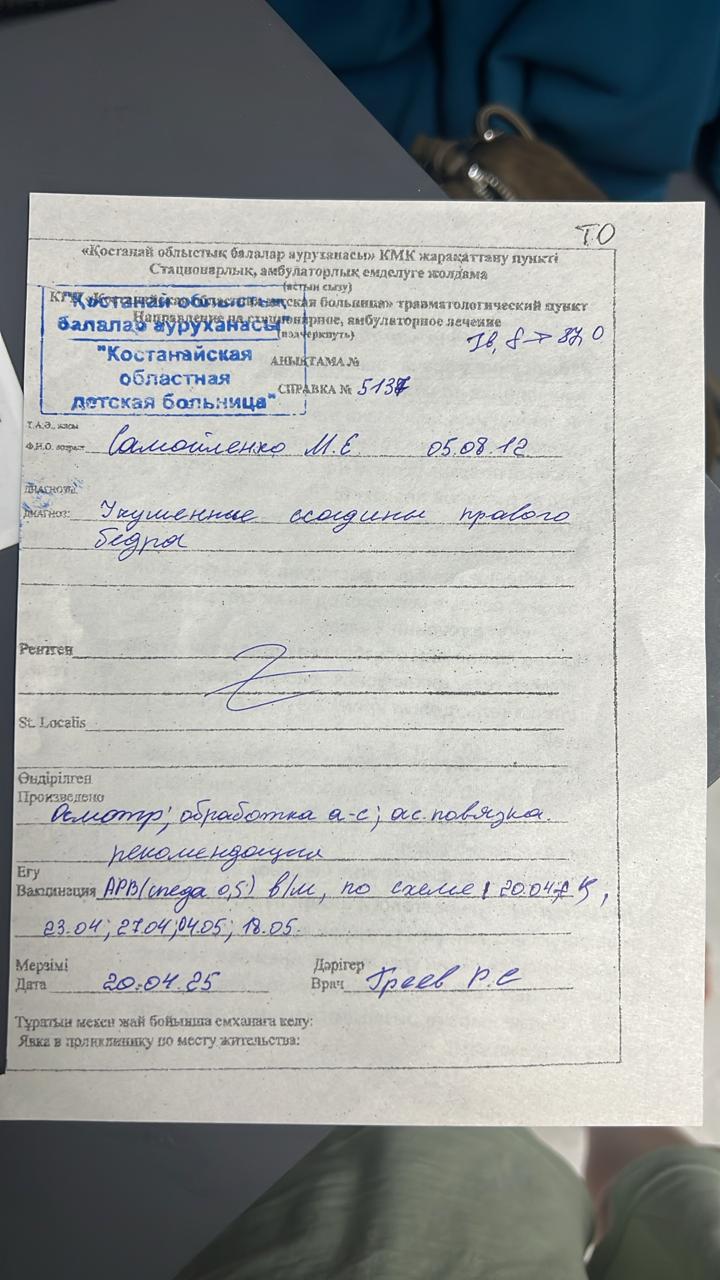 ТО
«Қостанай облыстық балалар ауруханасы» КМК жарақаттану пункті
Стационарлық, амбулаторлық емделуге жолдама
(астын сызу)
КГП «Костанайская областная детская больница» травматологический пункт
Направление на стационарное, амбулаторное лечение
(подчеркнуть)
"Қостанай облыстық
балалар ауруханасы"
"Костанайская
областная
детская больница"
АНЫҚТАМА №
СПРАВКА № 5137
Т.А.Ә., жасы
Ф.И.О. возраст Самойленко М.Е. 05.08.12
ДИАГНОЗЫ:
ДИАГНОЗ: Укушенные ссадины правого
бедра
Рентген
St. Localis
Өндірілген
Произведено
Осмотр; обработка а-с; ас.повязка.
рекомендации
Егу
Вакцинация АРВ ( 0,5) в/м, по схеме 20.04
23.04; 27.04; 04.05; 18.05.
Мерзімі
Дата 20.04.25
Дәрігер
Врач Р.С
Тұратын мекен жай бойынша емханаға келу:
Явка в поликлинику по месту жительства: